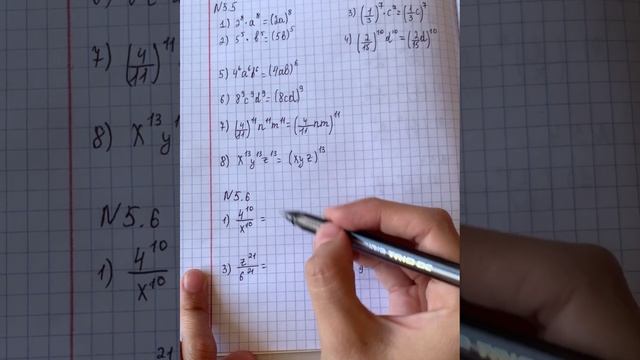 N35
1) 2⁸·a⁸=(2a)⁸
2) 5⁵·b⁵=(5b)⁵
3) (1/3)⁷·c⁷=(1/3c)⁷
4) (2/15)¹⁰d¹⁰=(2/15d)¹⁰
5) 4⁶a⁶b⁶=(4ab)⁶
6) 8⁹c⁹d⁹=(8cd)⁹
7) (4/11)¹¹n¹¹m¹¹=(4/11nm)¹¹
8) x¹³y¹³z¹³=(xyz)¹³
N5.6
1) 4¹⁰/x¹⁰=
3) z²¹/6²¹=
7) (4/11)¹¹
8) x¹³y
N5.6
1) 4¹⁰/x¹⁰
21